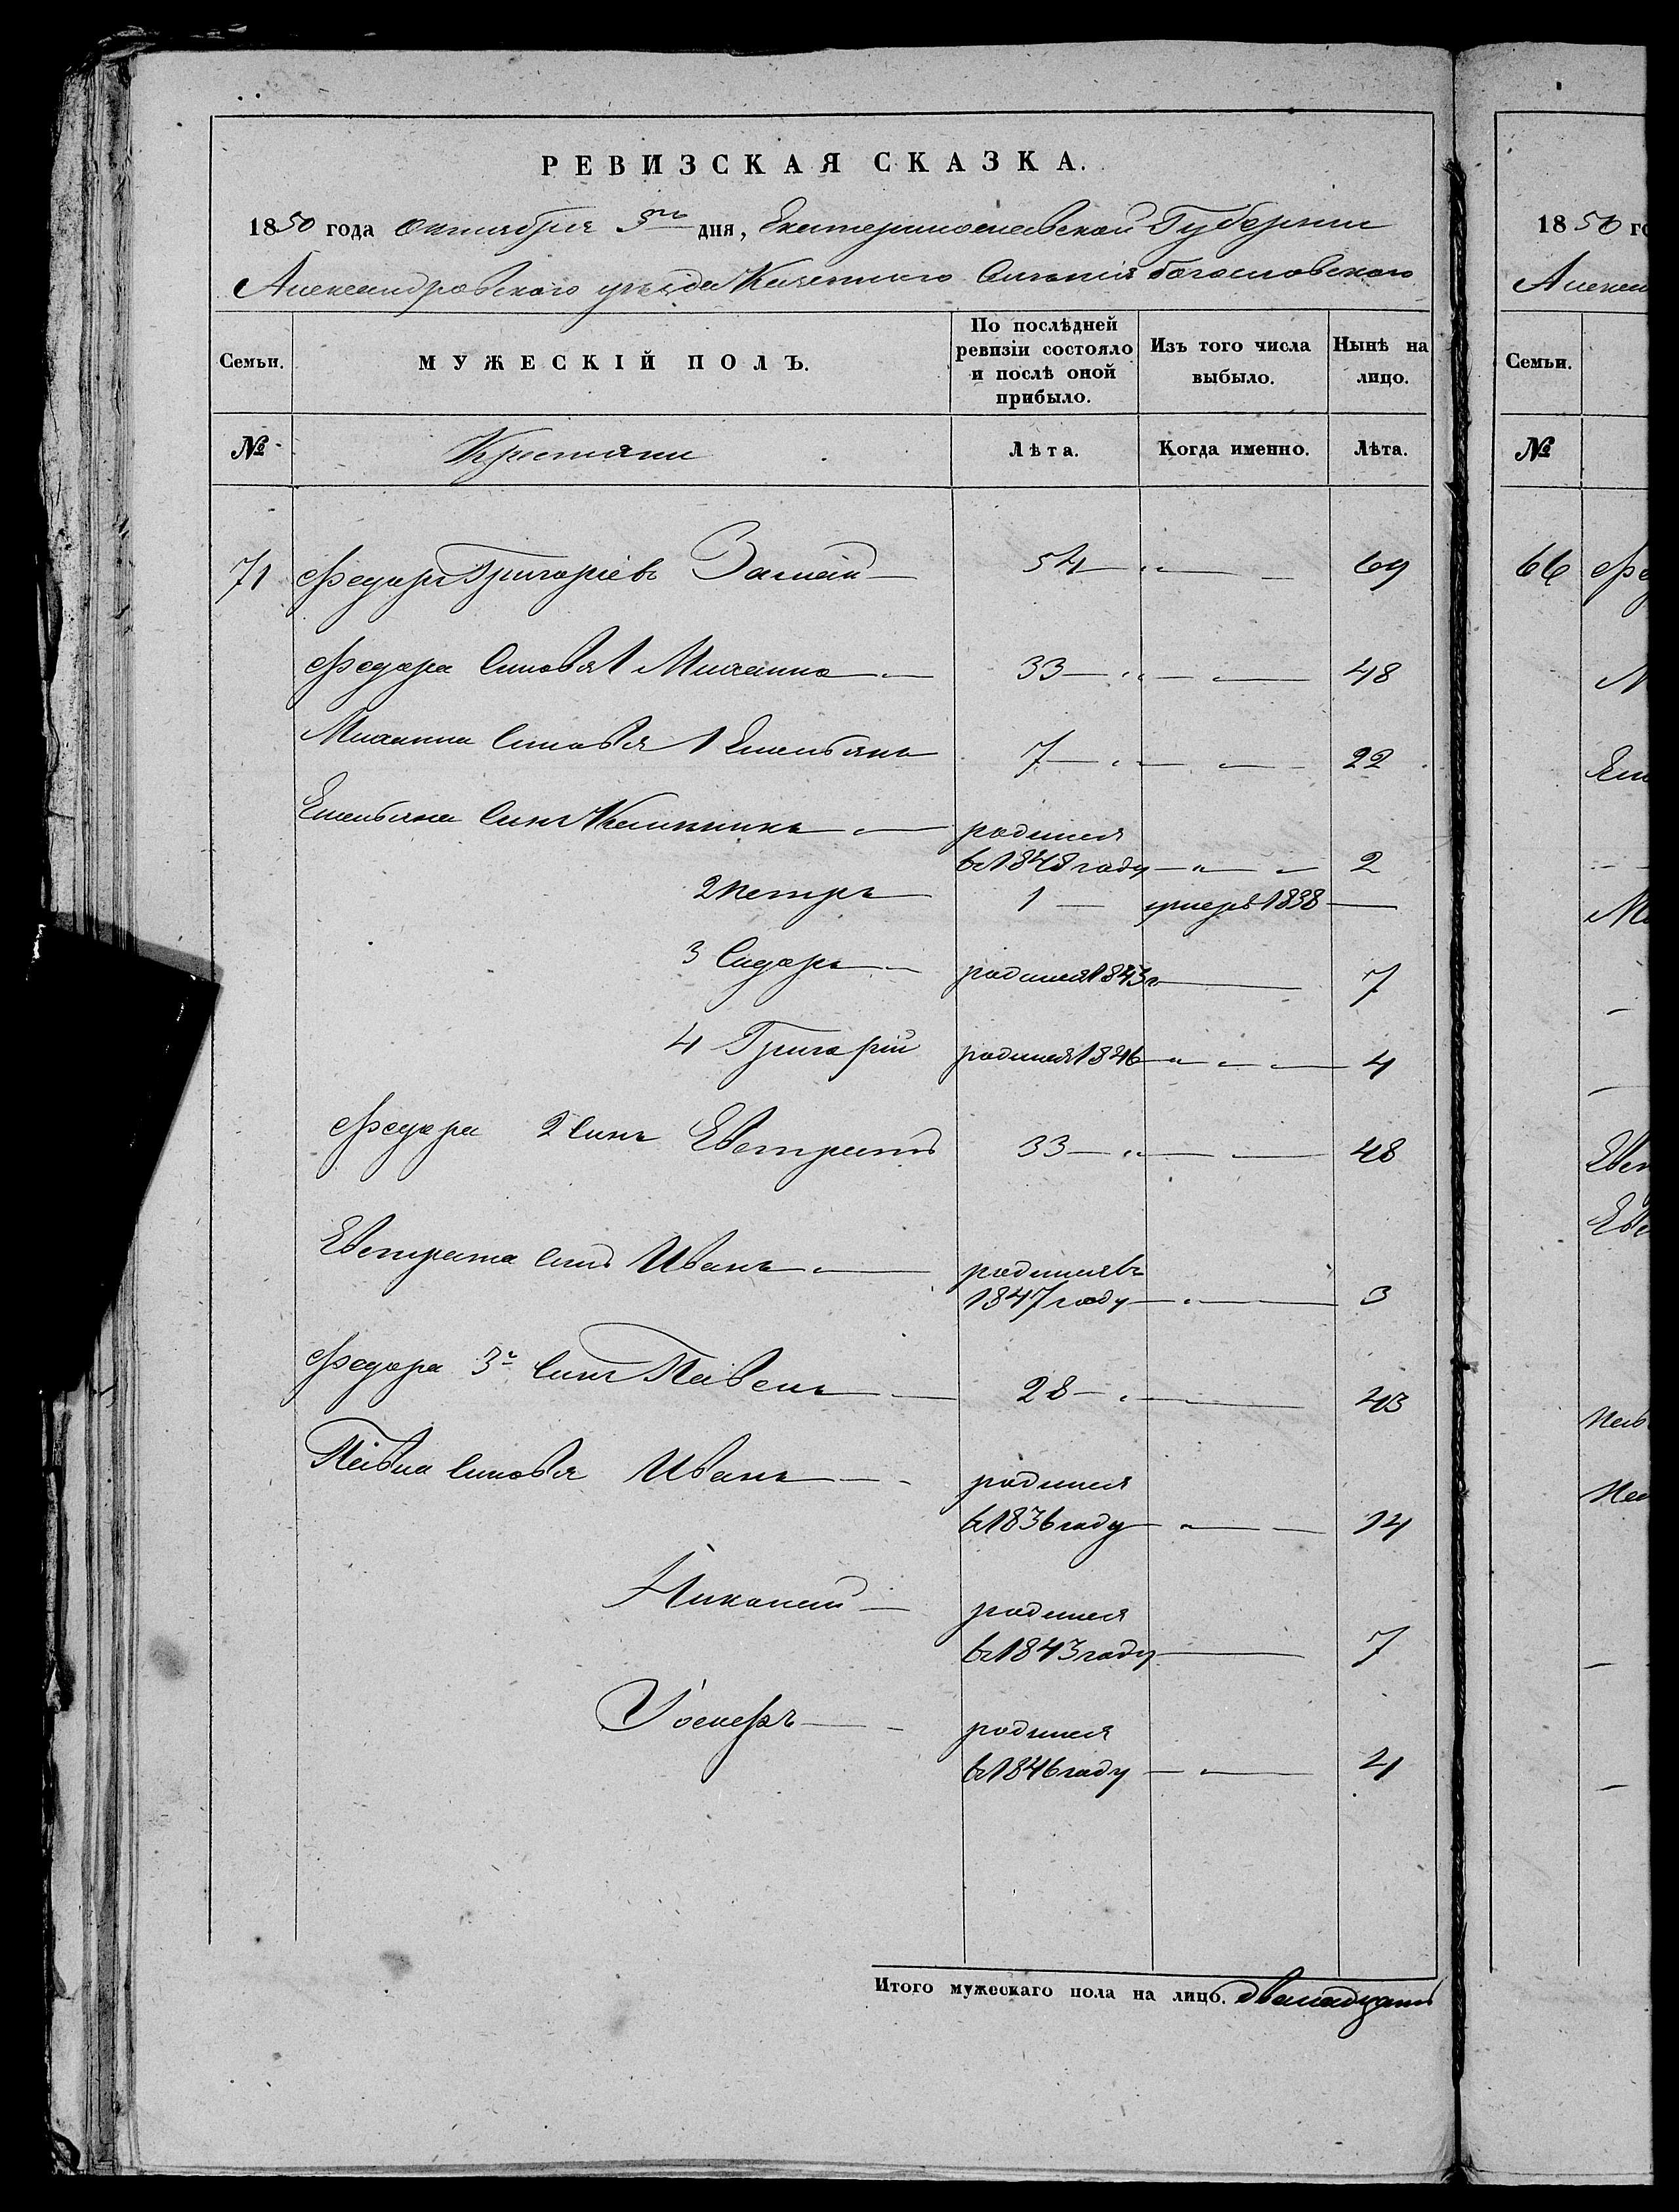 РЕВИЗСКАЯ СКАЗКА.
1850 года октября 3го дня, Екатеринославской Губернии
Александровского уезда Казенного Селения Богословского
Семьи. МУЖЕСКІЙ ПОЛЪ. По послѣдней ревизіи состояло и послѣ оной прибыло. Изъ того числа выбыло. Нынѣ на лицо.
№ Крестяни Лѣта. Когда именно. Лѣта.
71 Федоръ Григоріевъ 54 — " — 69
Федора Синовя 1 Михаило — 33 — " — 48
Михаила Синовя 1 Емелъянъ 7 — " — 22
Емелъяна Синъ Калинникъ — родился
в 1848 году — " — 2
2 Петръ — 1 — умеръ 1838 —
3 Сидоръ — родился 1843 г — 7
4 Григорій родился 1846 — " — 4
Федора 2 Синъ Евстратъ 33 — " — 48
Евстрата Синъ Иванъ — родился въ
1847 году — " — 3
Федора 3й Синъ Павелъ — 28 — " — 43
Павла Синовя Иванъ — родился
в 1836 году — " — 14
Николай — родился
в 1843 году — 7
Іосифъ — родился
в 1846 году — " — 4
Итого мужескаго пола на лицо. дванадцать
1850 го
Алексан
Семьи.
№
66 Фе
М
Еме
М
Евст
Евс
Пав
Пав